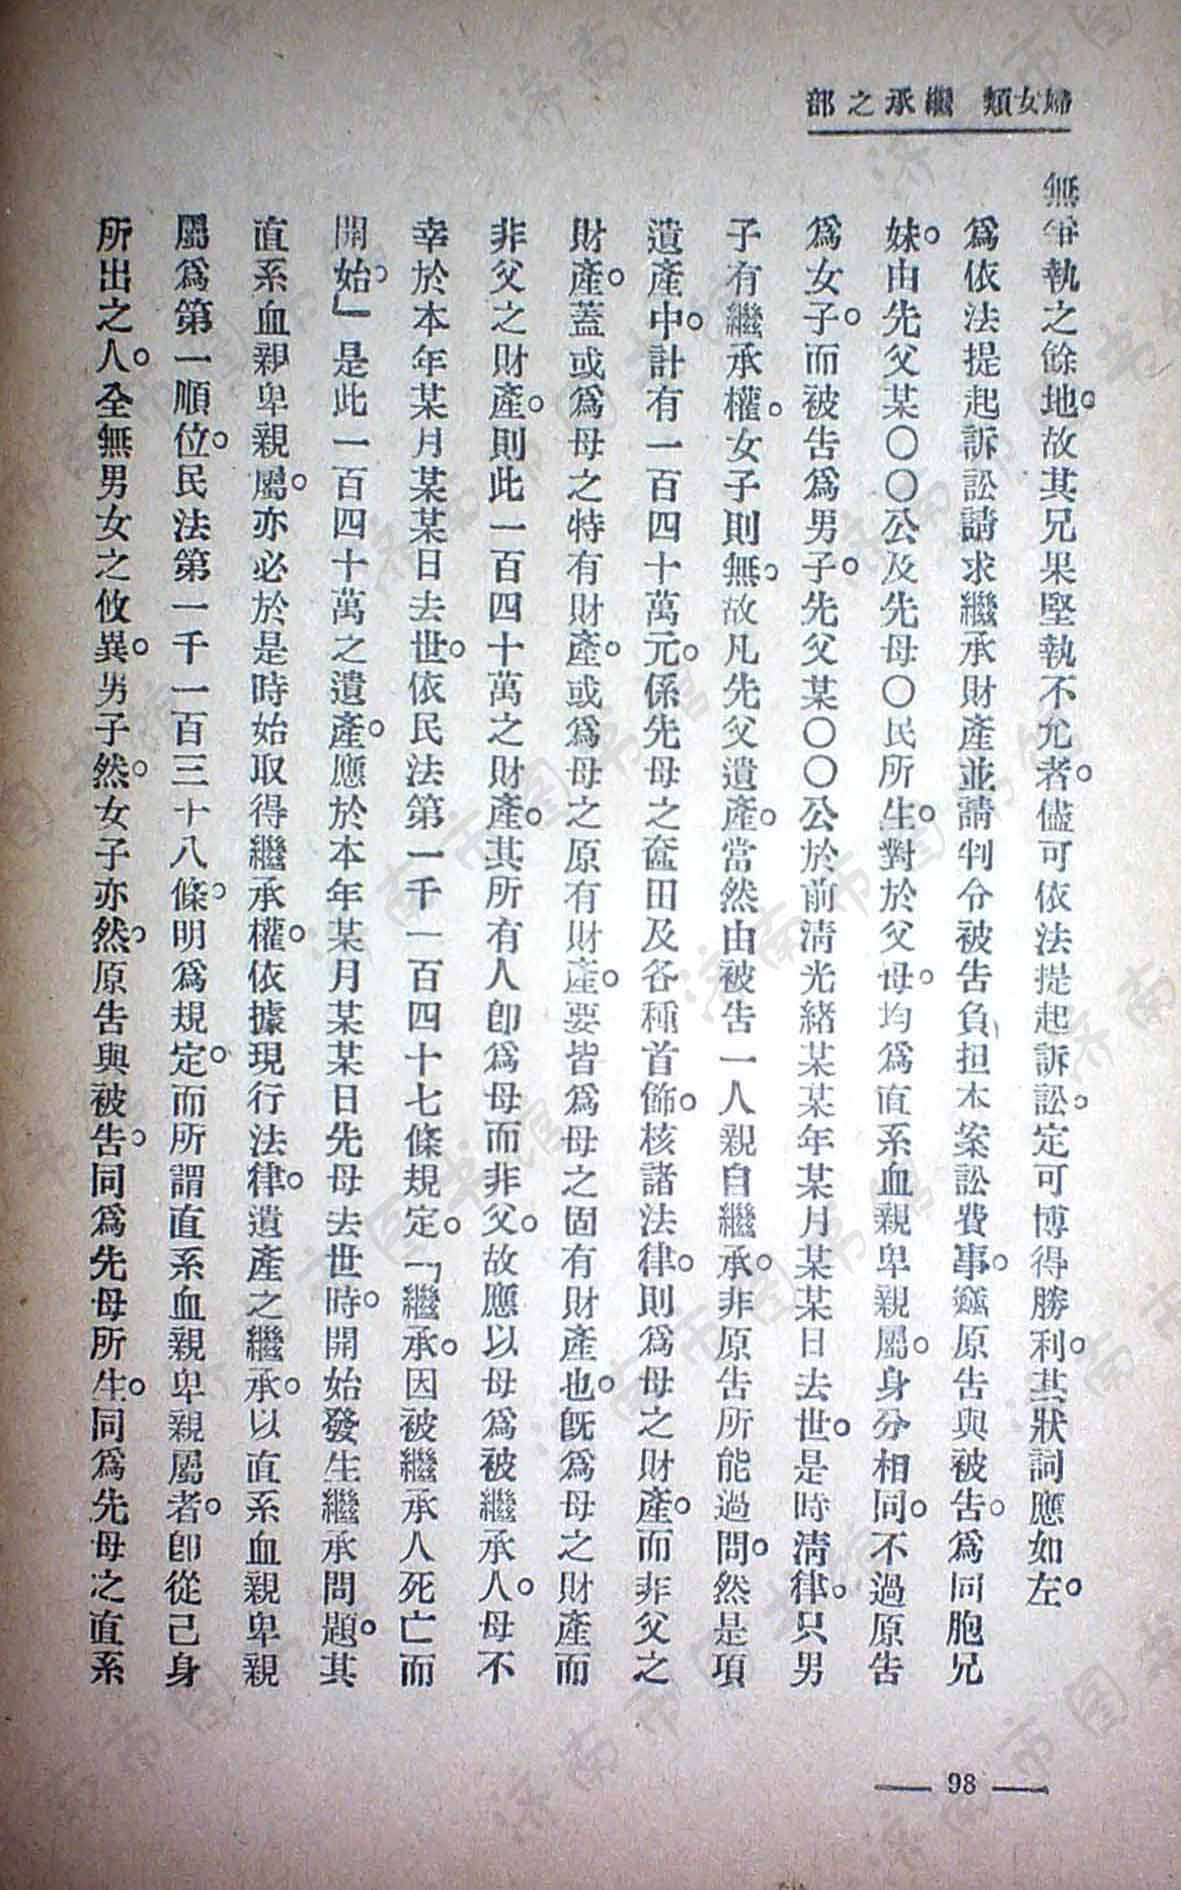 婦女類　繼承之部
無爭執之餘地。故其兄果堅執不允者。儘可依法提起訴訟。定可博得勝利。其狀詞應如左。
爲依法提起訴訟請求繼承財產並請判令被告負担本案訟費事。竊原告與被告。爲同胞兄
妹。由先父某〇〇公及先母〇民所生。對於父母。均爲直系血親卑親屬。身分相同。不過原告
爲女子。而被告爲男子。先父某〇〇公於前淸光緒某某年某月某某日去世。是時淸律。只男
子有繼承權。女子則無。故凡先父遺產。當然由被告一人親自繼承。非原告所能過問。然是項
遺產中。計有一百四十萬元。係先母之奩田及各種首飾。核諸法律。則爲母之財產。而非父之
財產。蓋或爲母之特有財產。或爲母之原有財產。要皆爲母之固有財產也。旣爲母之財產而
非父之財產。則此一百四十萬之財產。其所有人卽爲母而非父。故應以母爲被繼承人。母不
幸於本年某月某某日去世。依民法第一千一百四十七條規定。「繼承。因被繼承人死亡而
開始。」是此一百四十萬之遺產。應於本年某月某某日先母去世時。開始發生繼承問題。其
直系血親卑親屬。亦必於是時始取得繼承權。依據現行法律。遺產之繼承。以直系血親卑親
屬爲第一順位。民法第一千一百三十八條。明爲規定。而所謂直系血親卑親屬者。卽從己身
所出之人。全無男女之攸異。男子然。女子亦然。原告與被告。同爲先母所生。同爲先母之直系
98
济南市图书馆